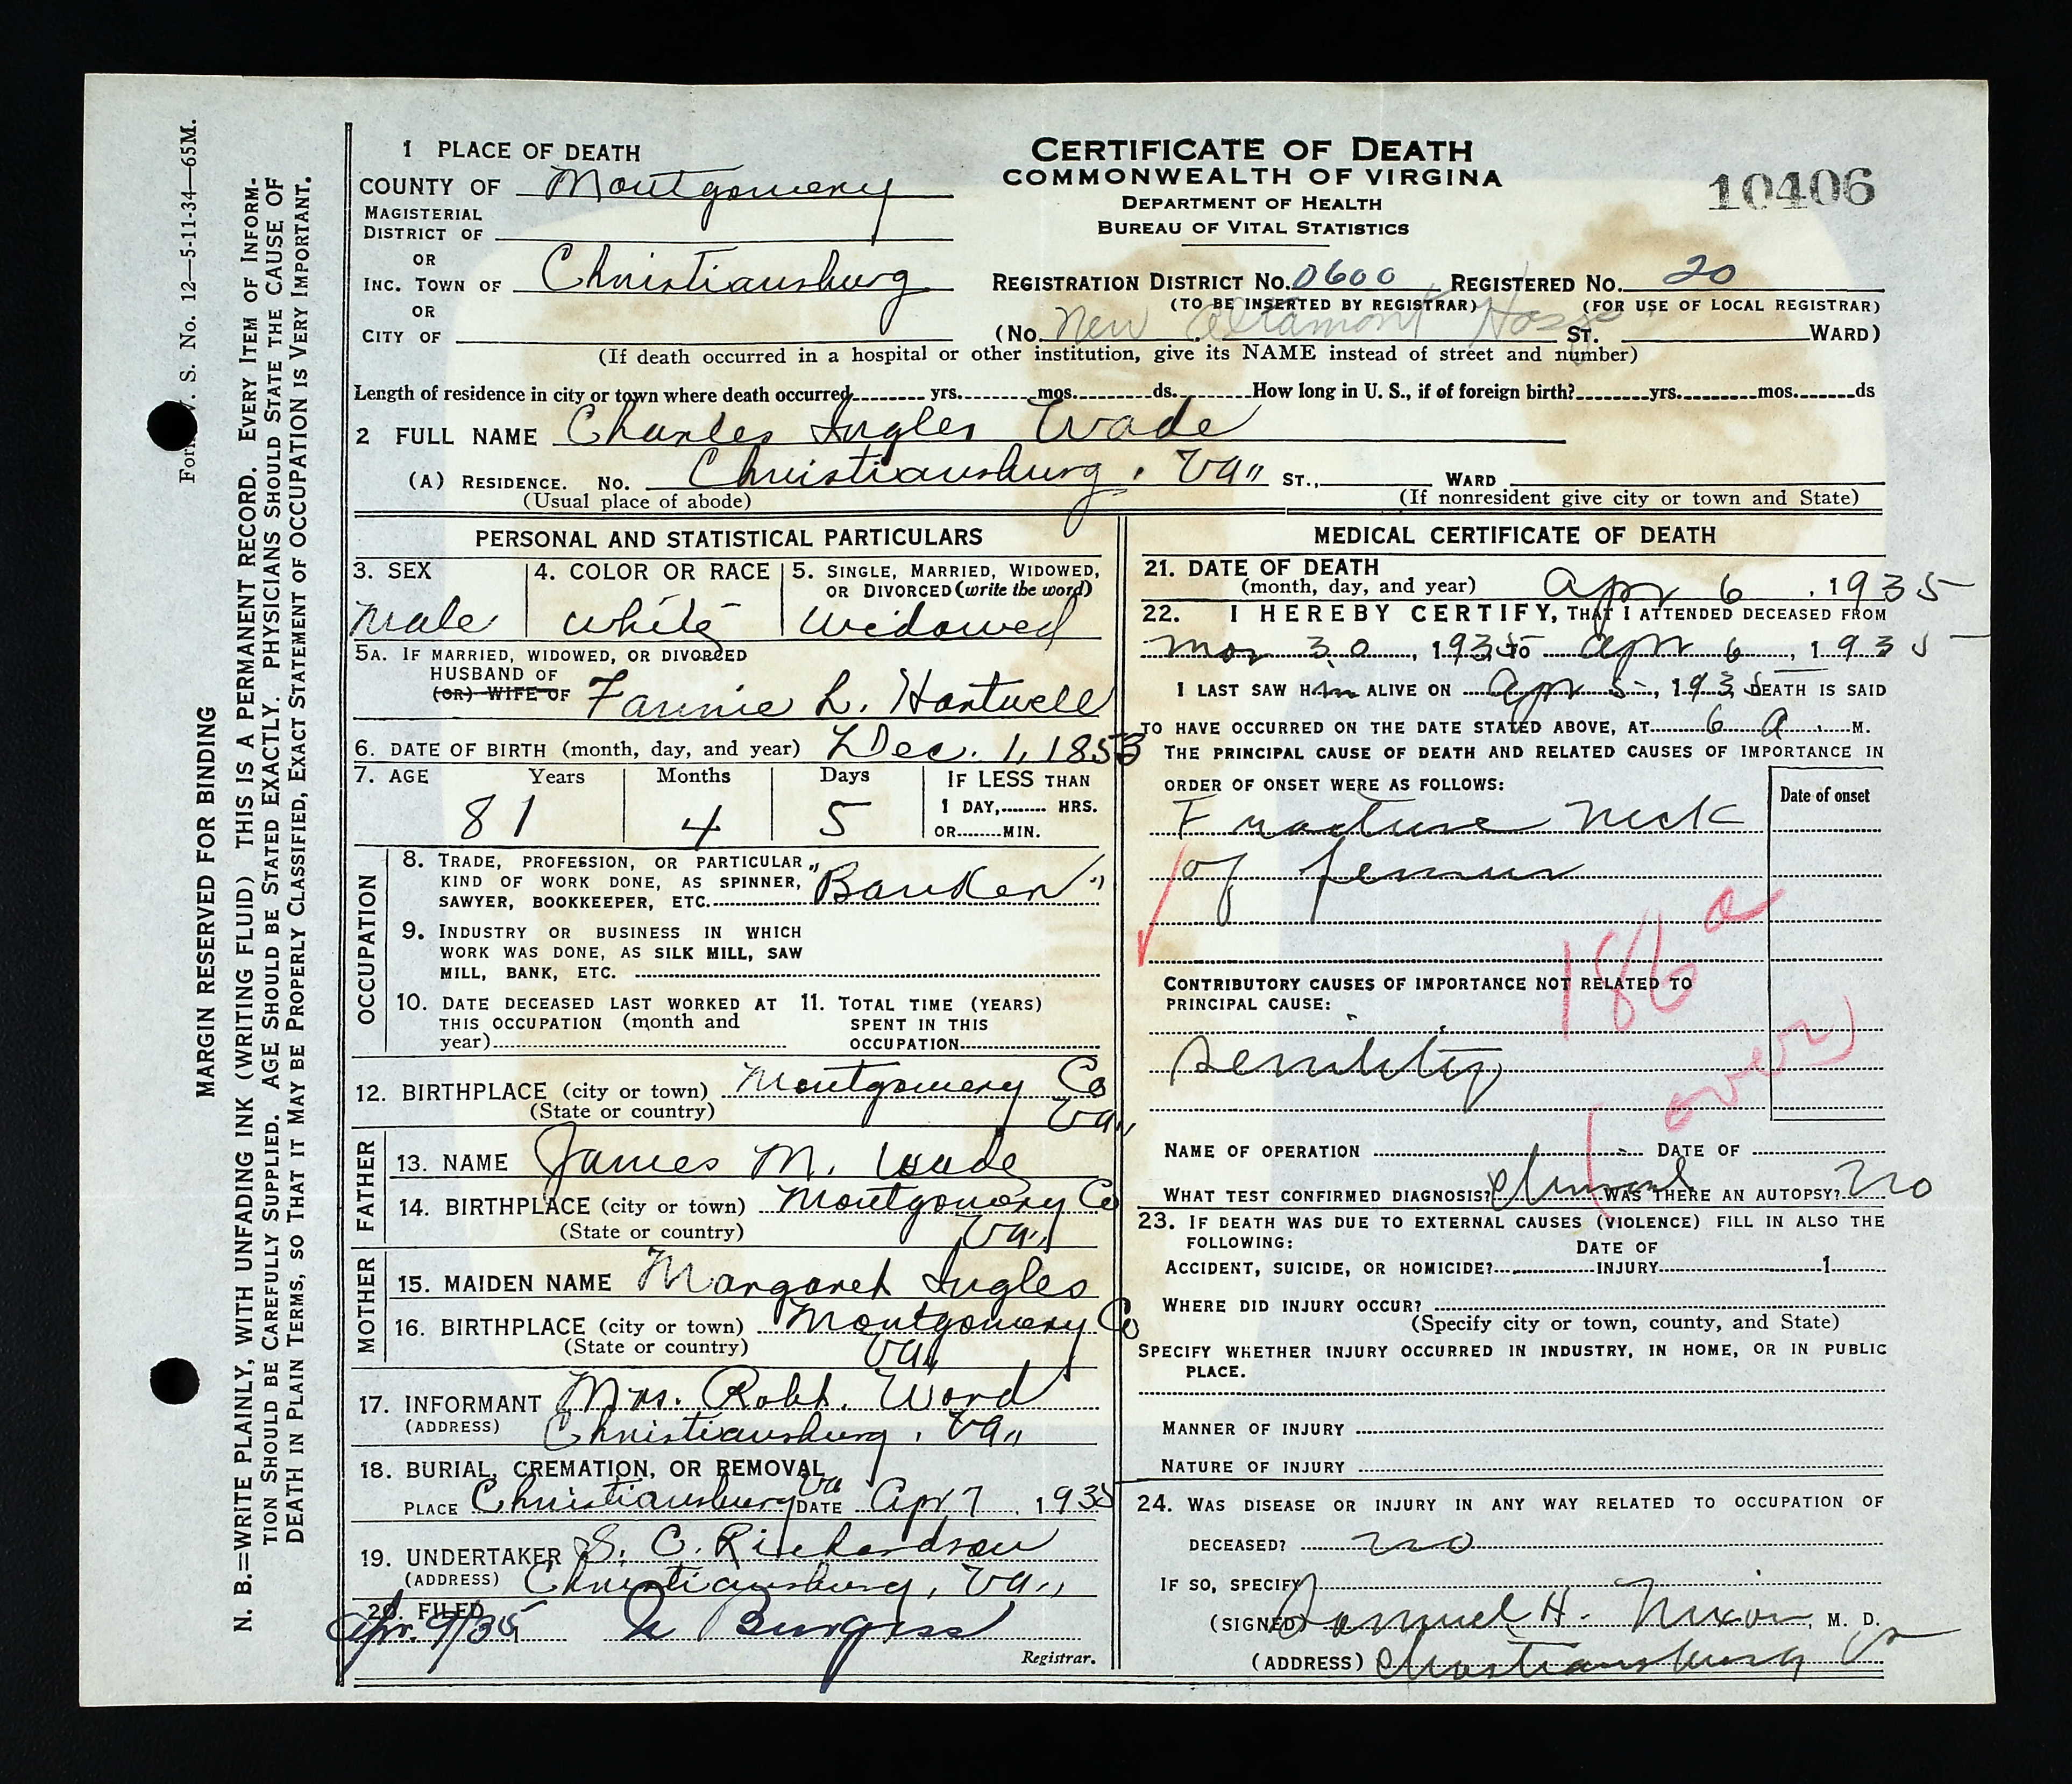 Form V. S. No. 12—5-11-34—65M.
MARGIN RESERVED FOR BINDING
N. B.=WRITE PLAINLY, WITH UNFADING INK (WRITING FLUID) THIS IS A PERMANENT RECORD. EVERY ITEM OF INFORM-
TION SHOULD BE CAREFULLY SUPPLIED. AGE SHOULD BE STATED EXACTLY. PHYSICIANS SHOULD STATE THE CAUSE OF
DEATH IN PLAIN TERMS, SO THAT IT MAY BE PROPERLY CLASSIFIED, EXACT STATEMENT OF OCCUPATION IS VERY IMPORTANT.
CERTIFICATE OF DEATH
COMMONWEALTH OF VIRGINA
DEPARTMENT OF HEALTH
BUREAU OF VITAL STATISTICS
10406
1 PLACE OF DEATH
COUNTY OF Montgomery
MAGISTERIAL
DISTRICT OF
OR
INC. TOWN OF Christiansburg
OR
CITY OF
REGISTRATION DISTRICT No. 0600 REGISTERED No. 20
(TO BE INSERTED BY REGISTRAR) (FOR USE OF LOCAL REGISTRAR)
(No. New Altamont Hosp ST. WARD)
(If death occurred in a hospital or other institution, give its NAME instead of street and number)
Length of residence in city or town where death occurred yrs. mos. ds. How long in U. S., if of foreign birth? yrs. mos. ds
2 FULL NAME Charles Ingles Wade
(A) RESIDENCE. No. Christiansburg, Va. ST., WARD
(Usual place of abode) (If nonresident give city or town and State)
PERSONAL AND STATISTICAL PARTICULARS
3. SEX
Male
4. COLOR OR RACE
White
5. SINGLE, MARRIED, WIDOWED,
OR DIVORCED (write the word)
Widowed
5A. IF MARRIED, WIDOWED, OR DIVORCED
HUSBAND OF
(OR) WIFE OF Fannie L. Hartwell
6. DATE OF BIRTH (month, day, and year) Dec. 1, 1853
7. AGE Years Months Days IF LESS THAN
1 DAY, HRS.
OR MIN.
81 4 5
OCCUPATION
8. TRADE, PROFESSION, OR PARTICULAR
KIND OF WORK DONE, AS SPINNER,
SAWYER, BOOKKEEPER, ETC. "Banker"
9. INDUSTRY OR BUSINESS IN WHICH
WORK WAS DONE, AS SILK MILL, SAW
MILL, BANK, ETC.
10. DATE DECEASED LAST WORKED AT
THIS OCCUPATION (month and
year)
11. TOTAL TIME (YEARS)
SPENT IN THIS
OCCUPATION
12. BIRTHPLACE (city or town) Montgomery Co
(State or country) Va.
FATHER
13. NAME James M. Wade
14. BIRTHPLACE (city or town) Montgomery Co
(State or country) Va.
MOTHER
15. MAIDEN NAME Margaret Ingles
16. BIRTHPLACE (city or town) Montgomery Co
(State or country) Va.
17. INFORMANT Mrs. Robt. Word
(ADDRESS) Christiansburg, Va.
18. BURIAL, CREMATION, OR REMOVAL
PLACE Christiansburg Va DATE Apr 7, 1935
19. UNDERTAKER S. C. Richardson
(ADDRESS) Christiansburg, Va.
20. FILED
Apr. 9/35 Burgess
Registrar.
MEDICAL CERTIFICATE OF DEATH
21. DATE OF DEATH
(month, day, and year) Apr 6, 1935
22. I HEREBY CERTIFY, THAT I ATTENDED DECEASED FROM
Mar 30, 1935 TO Apr 6, 1935
I LAST SAW HIM ALIVE ON Apr 5, 1935, DEATH IS SAID
TO HAVE OCCURRED ON THE DATE STATED ABOVE, AT 6 A. M.
THE PRINCIPAL CAUSE OF DEATH AND RELATED CAUSES OF IMPORTANCE IN
ORDER OF ONSET WERE AS FOLLOWS:
Date of onset
Fracture neck
of femur
186 a
CONTRIBUTORY CAUSES OF IMPORTANCE NOT RELATED TO
PRINCIPAL CAUSE:
Senility
(over)
NAME OF OPERATION DATE OF
WHAT TEST CONFIRMED DIAGNOSIS? Clinical WAS THERE AN AUTOPSY? no
23. IF DEATH WAS DUE TO EXTERNAL CAUSES (VIOLENCE) FILL IN ALSO THE
FOLLOWING:
ACCIDENT, SUICIDE, OR HOMICIDE? DATE OF INJURY 1
WHERE DID INJURY OCCUR?
(Specify city or town, county, and State)
SPECIFY WHETHER INJURY OCCURRED IN INDUSTRY, IN HOME, OR IN PUBLIC
PLACE.
MANNER OF INJURY
NATURE OF INJURY
24. WAS DISEASE OR INJURY IN ANY WAY RELATED TO OCCUPATION OF
DECEASED? no
IF SO, SPECIFY
(SIGNED) Samuel H. Nixon, M. D.
(ADDRESS) Christiansburg Va